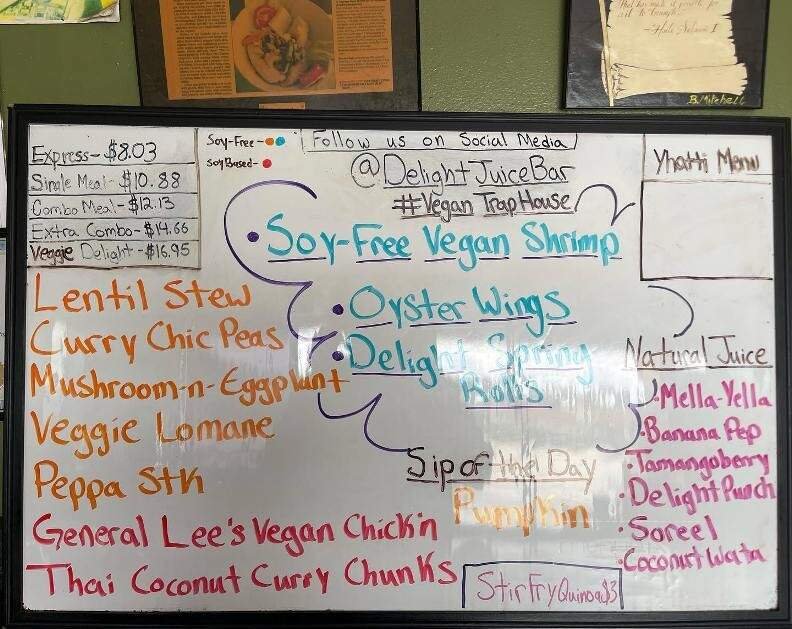 B. Mitchell
Express-$8.03
Single Meal-$10.88
Combo Meal-$12.13
Extra Combo-$14.66
Veggie Delight-$16.95
Soy-Free-
Soy Based-
Follow us on Social Media
@DelightJuiceBar
#Vegan TrapHouse
Yhatti Menu
• Soy-Free Vegan Shrimp
• Oyster Wings
• Delight Spring
Rolls
Lentil Stew
Curry Chic Peas
Mushroom-n-Eggplant
Veggie Lomane
Peppa Stk
General Lee's Vegan Chick'n
Thai Coconut Curry Chunks
Sip of the Day
Pumpkin
Stir Fry Quinoa $3
Natural Juice
• Mella-Yella
• Banana Pep
• Tamangoberry
• Delight Punch
• Soreel
• Coconut Wata